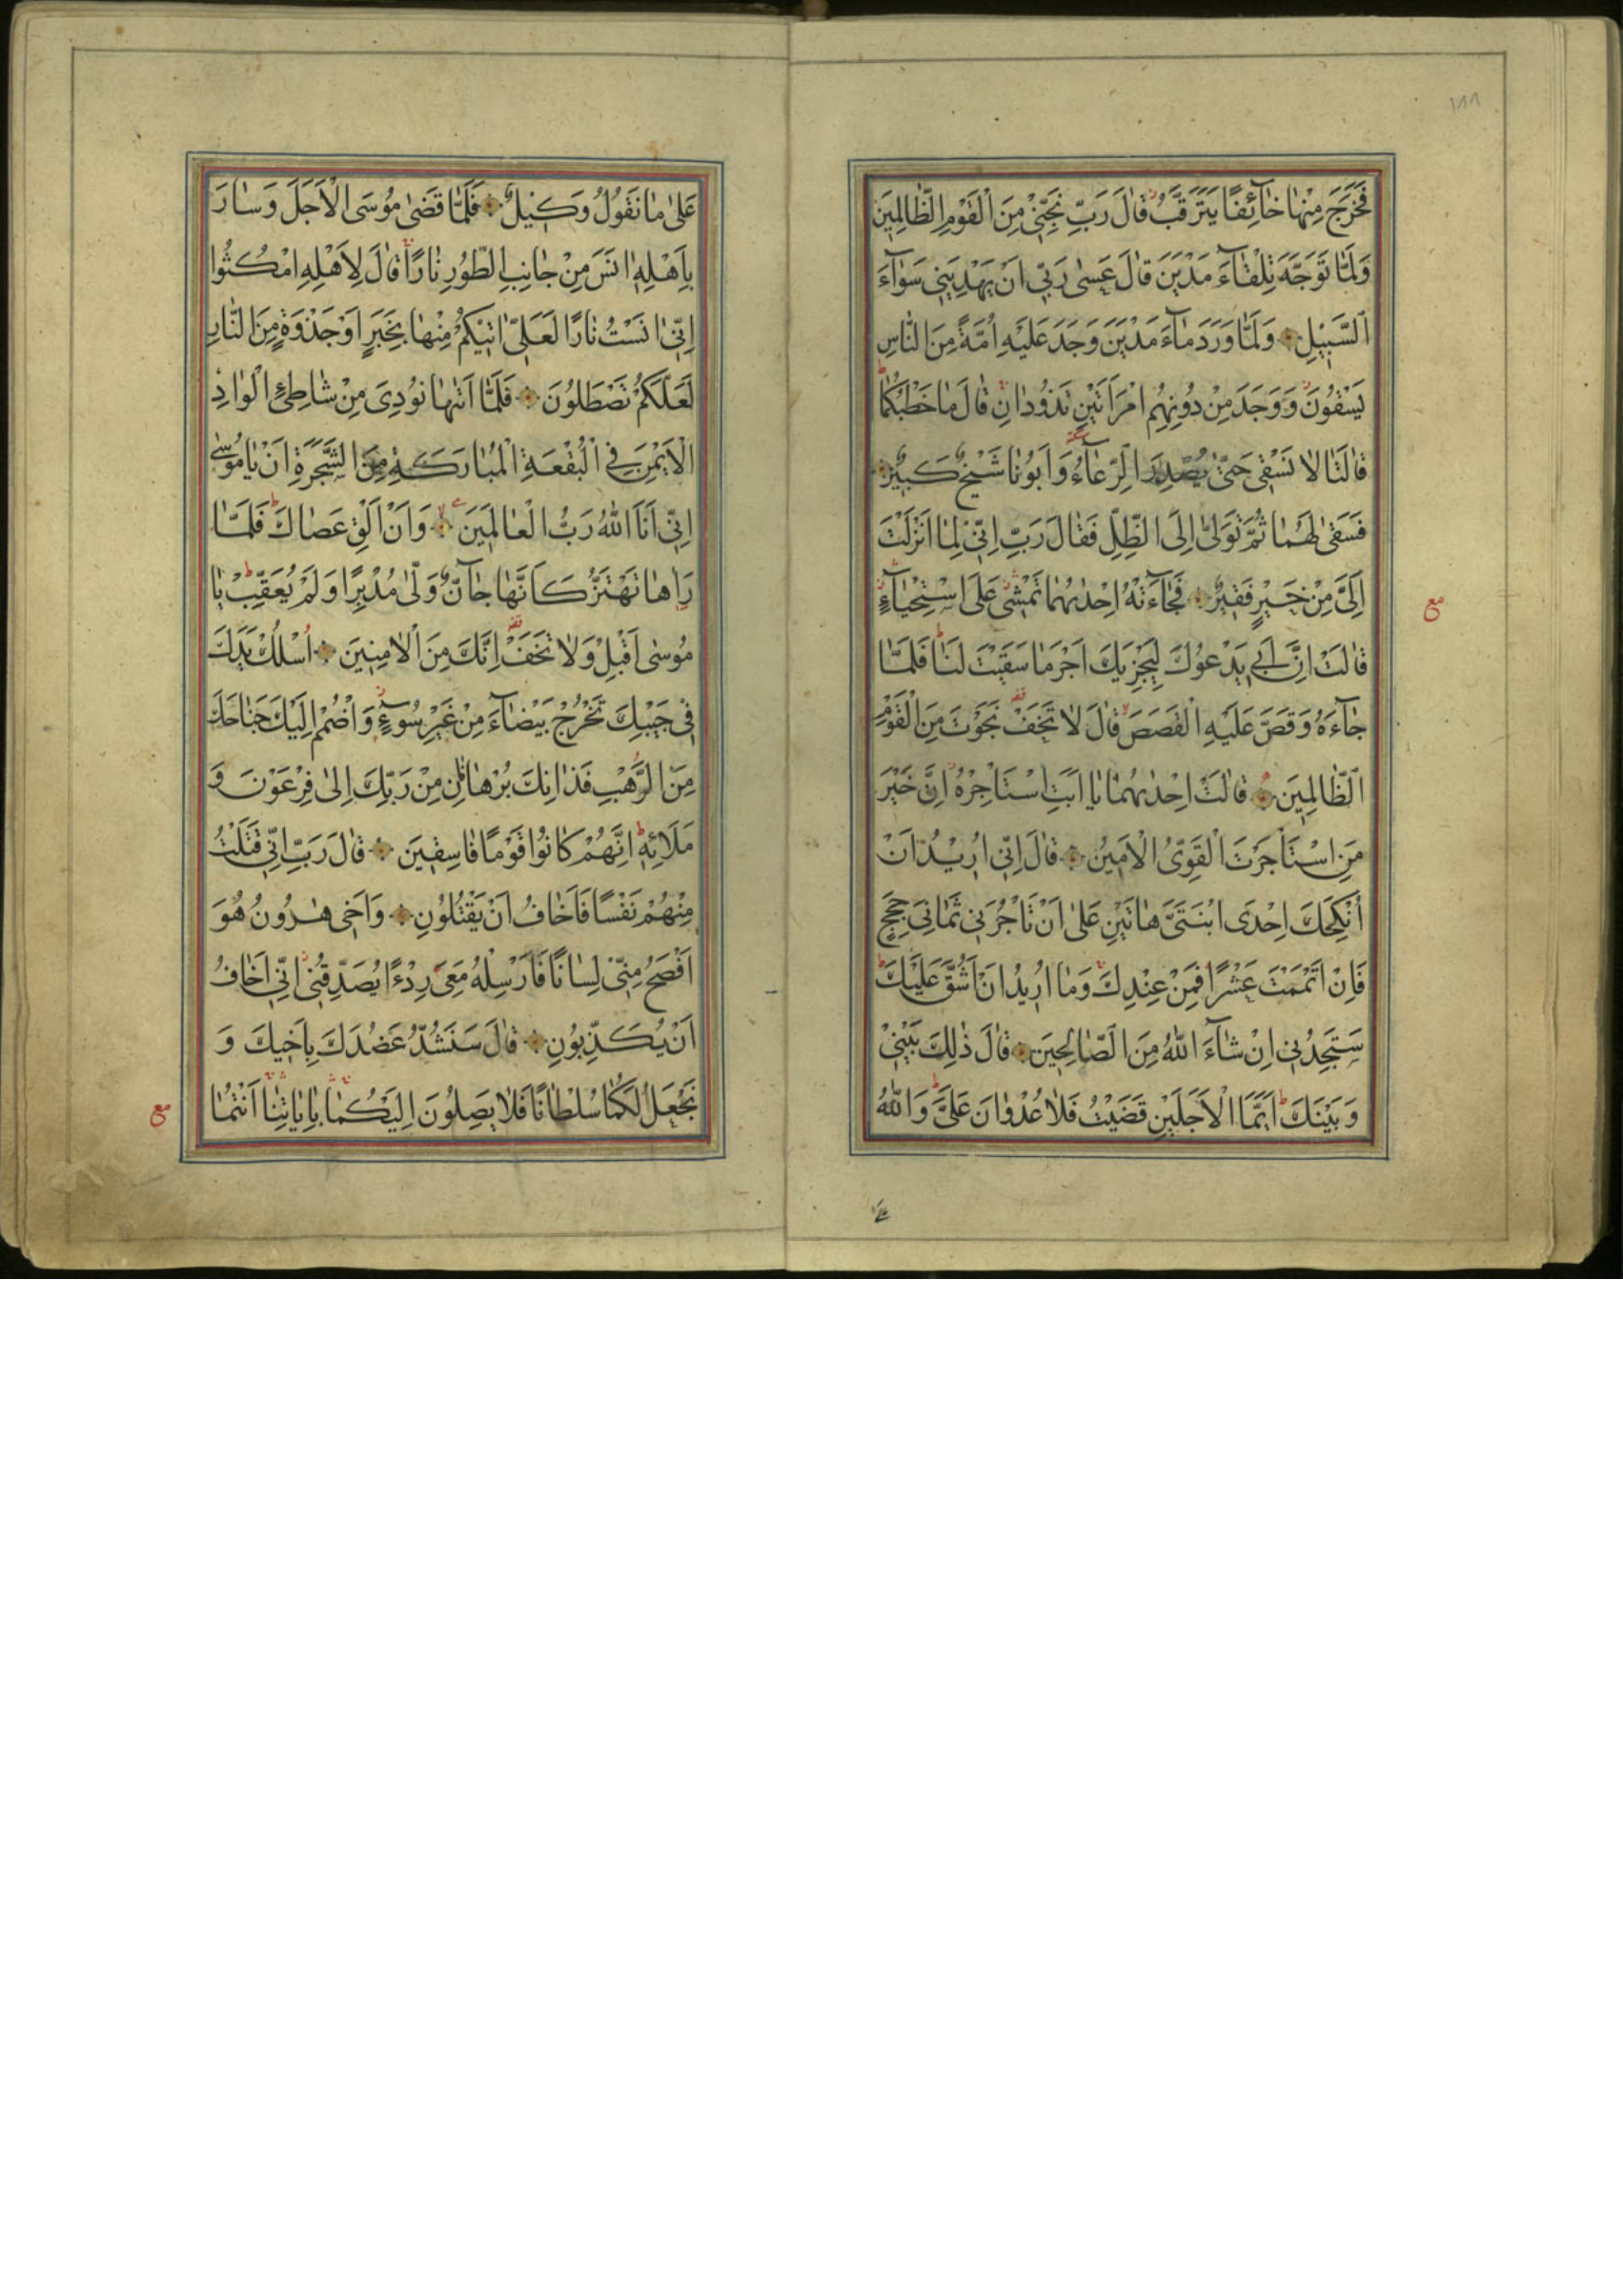 ١٨٨
فَخَرَجَ مِنْهَا خَآئِفًا يَتَرَقَّبُ قَالَ رَبِّ نَجِّنِي مِنَ الْقَوْمِ الظَّالِمِينَ
وَلَمَّا تَوَجَّهَ تِلْقَآءَ مَدْيَنَ قَالَ عَسٰى رَبِّي اَنْ يَهْدِيَنِي سَوَآءَ
السَّبِيلِ وَلَمَّا وَرَدَ مَآءَ مَدْيَنَ وَجَدَ عَلَيْهِ اُمَّةً مِنَ النَّاسِ
يَسْقُونَ وَوَجَدَ مِنْ دُونِهِمُ امْرَاَتَيْنِ تَذُودَانِ قَالَ مَا خَطْبُكُمَا
قَالَتَا لَا نَسْقِي حَتّٰى يُصْدِرَ الرِّعَآءُ وَاَبُونَا شَيْخٌ كَبِيرٌ
فَسَقٰى لَهُمَا ثُمَّ تَوَلّٰى اِلَى الظِّلِّ فَقَالَ رَبِّ اِنِّي لِمَا اَنْزَلْتَ
اِلَيَّ مِنْ خَيْرٍ فَقِيرٌ فَجَآءَتْهُ اِحْدٰيهُمَا تَمْشِي عَلَى اسْتِحْيَآءٍ
مع
قَالَتْ اِنَّ اَبِي يَدْعُوكَ لِيَجْزِيَكَ اَجْرَ مَا سَقَيْتَ لَنَا فَلَمَّا
جَآءَهُ وَقَصَّ عَلَيْهِ الْقَصَصَ قَالَ لَا تَخَفْ نَجَوْتَ مِنَ الْقَوْمِ
الظَّالِمِينَ قَالَتْ اِحْدٰيهُمَا يَا اَبَتِ اسْتَاْجِرْهُ اِنَّ خَيْرَ
مَنِ اسْتَاْجَرْتَ الْقَوِيُّ الْاَمِينُ قَالَ اِنِّي اُرِيدُ اَنْ
اُنْكِحَكَ اِحْدَى ابْنَتَيَّ هَاتَيْنِ عَلٰى اَنْ تَاْجُرَنِي ثَمَانِيَ حِجَجٍ
فَاِنْ اَتْمَمْتَ عَشْرًا فَمِنْ عِنْدِكَ وَمَا اُرِيدُ اَنْ اَشُقَّ عَلَيْكَ
سَتَجِدُنِي اِنْ شَآءَ اللّٰهُ مِنَ الصَّالِحِينَ قَالَ ذٰلِكَ بَيْنِي
وَبَيْنَكَ اَيَّمَا الْاَجَلَيْنِ قَضَيْتُ فَلَا عُدْوَانَ عَلَيَّ وَاللّٰهُ
عَلٰى مَا نَقُولُ وَكِيلٌ فَلَمَّا قَضٰى مُوسَى الْاَجَلَ وَسَارَ
بِاَهْلِهِ اٰنَسَ مِنْ جَانِبِ الطُّورِ نَارًا قَالَ لِاَهْلِهِ امْكُثُوا
اِنِّي اٰنَسْتُ نَارًا لَعَلِّي اٰتِيكُمْ مِنْهَا بِخَبَرٍ اَوْ جَذْوَةٍ مِنَ النَّارِ
لَعَلَّكُمْ تَصْطَلُونَ فَلَمَّا اَتٰيهَا نُودِيَ مِنْ شَاطِئِ الْوَادِ
الْاَيْمَنِ فِي الْبُقْعَةِ الْمُبَارَكَةِ مِنَ الشَّجَرَةِ اَنْ يَا مُوسٰى
اِنِّي اَنَا اللّٰهُ رَبُّ الْعَالَمِينَ وَاَنْ اَلْقِ عَصَاكَ فَلَمَّا
رَاٰهَا تَهْتَزُّ كَاَنَّهَا جَآنٌّ وَلّٰى مُدْبِرًا وَلَمْ يُعَقِّبْ يَا
مُوسٰى اَقْبِلْ وَلَا تَخَفْ اِنَّكَ مِنَ الْاٰمِنِينَ اُسْلُكْ يَدَكَ
فِي جَيْبِكَ تَخْرُجْ بَيْضَآءَ مِنْ غَيْرِ سُوٓءٍ وَاضْمُمْ اِلَيْكَ جَنَاحَكَ
مِنَ الرَّهْبِ فَذَانِكَ بُرْهَانَانِ مِنْ رَبِّكَ اِلٰى فِرْعَوْنَ وَ
مَلَائِهِ اِنَّهُمْ كَانُوا قَوْمًا فَاسِقِينَ قَالَ رَبِّ اِنِّي قَتَلْتُ
مِنْهُمْ نَفْسًا فَاَخَافُ اَنْ يَقْتُلُونِ وَاَخِي هٰرُونُ هُوَ
اَفْصَحُ مِنِّي لِسَانًا فَاَرْسِلْهُ مَعِيَ رِدْءًا يُصَدِّقُنِي اِنِّي اَخَافُ
اَنْ يُكَذِّبُونِ قَالَ سَنَشُدُّ عَضُدَكَ بِاَخِيكَ وَ
نَجْعَلُ لَكُمَا سُلْطَانًا فَلَا يَصِلُونَ اِلَيْكُمَا بِاٰيَاتِنَا اَنْتُمَا
مع